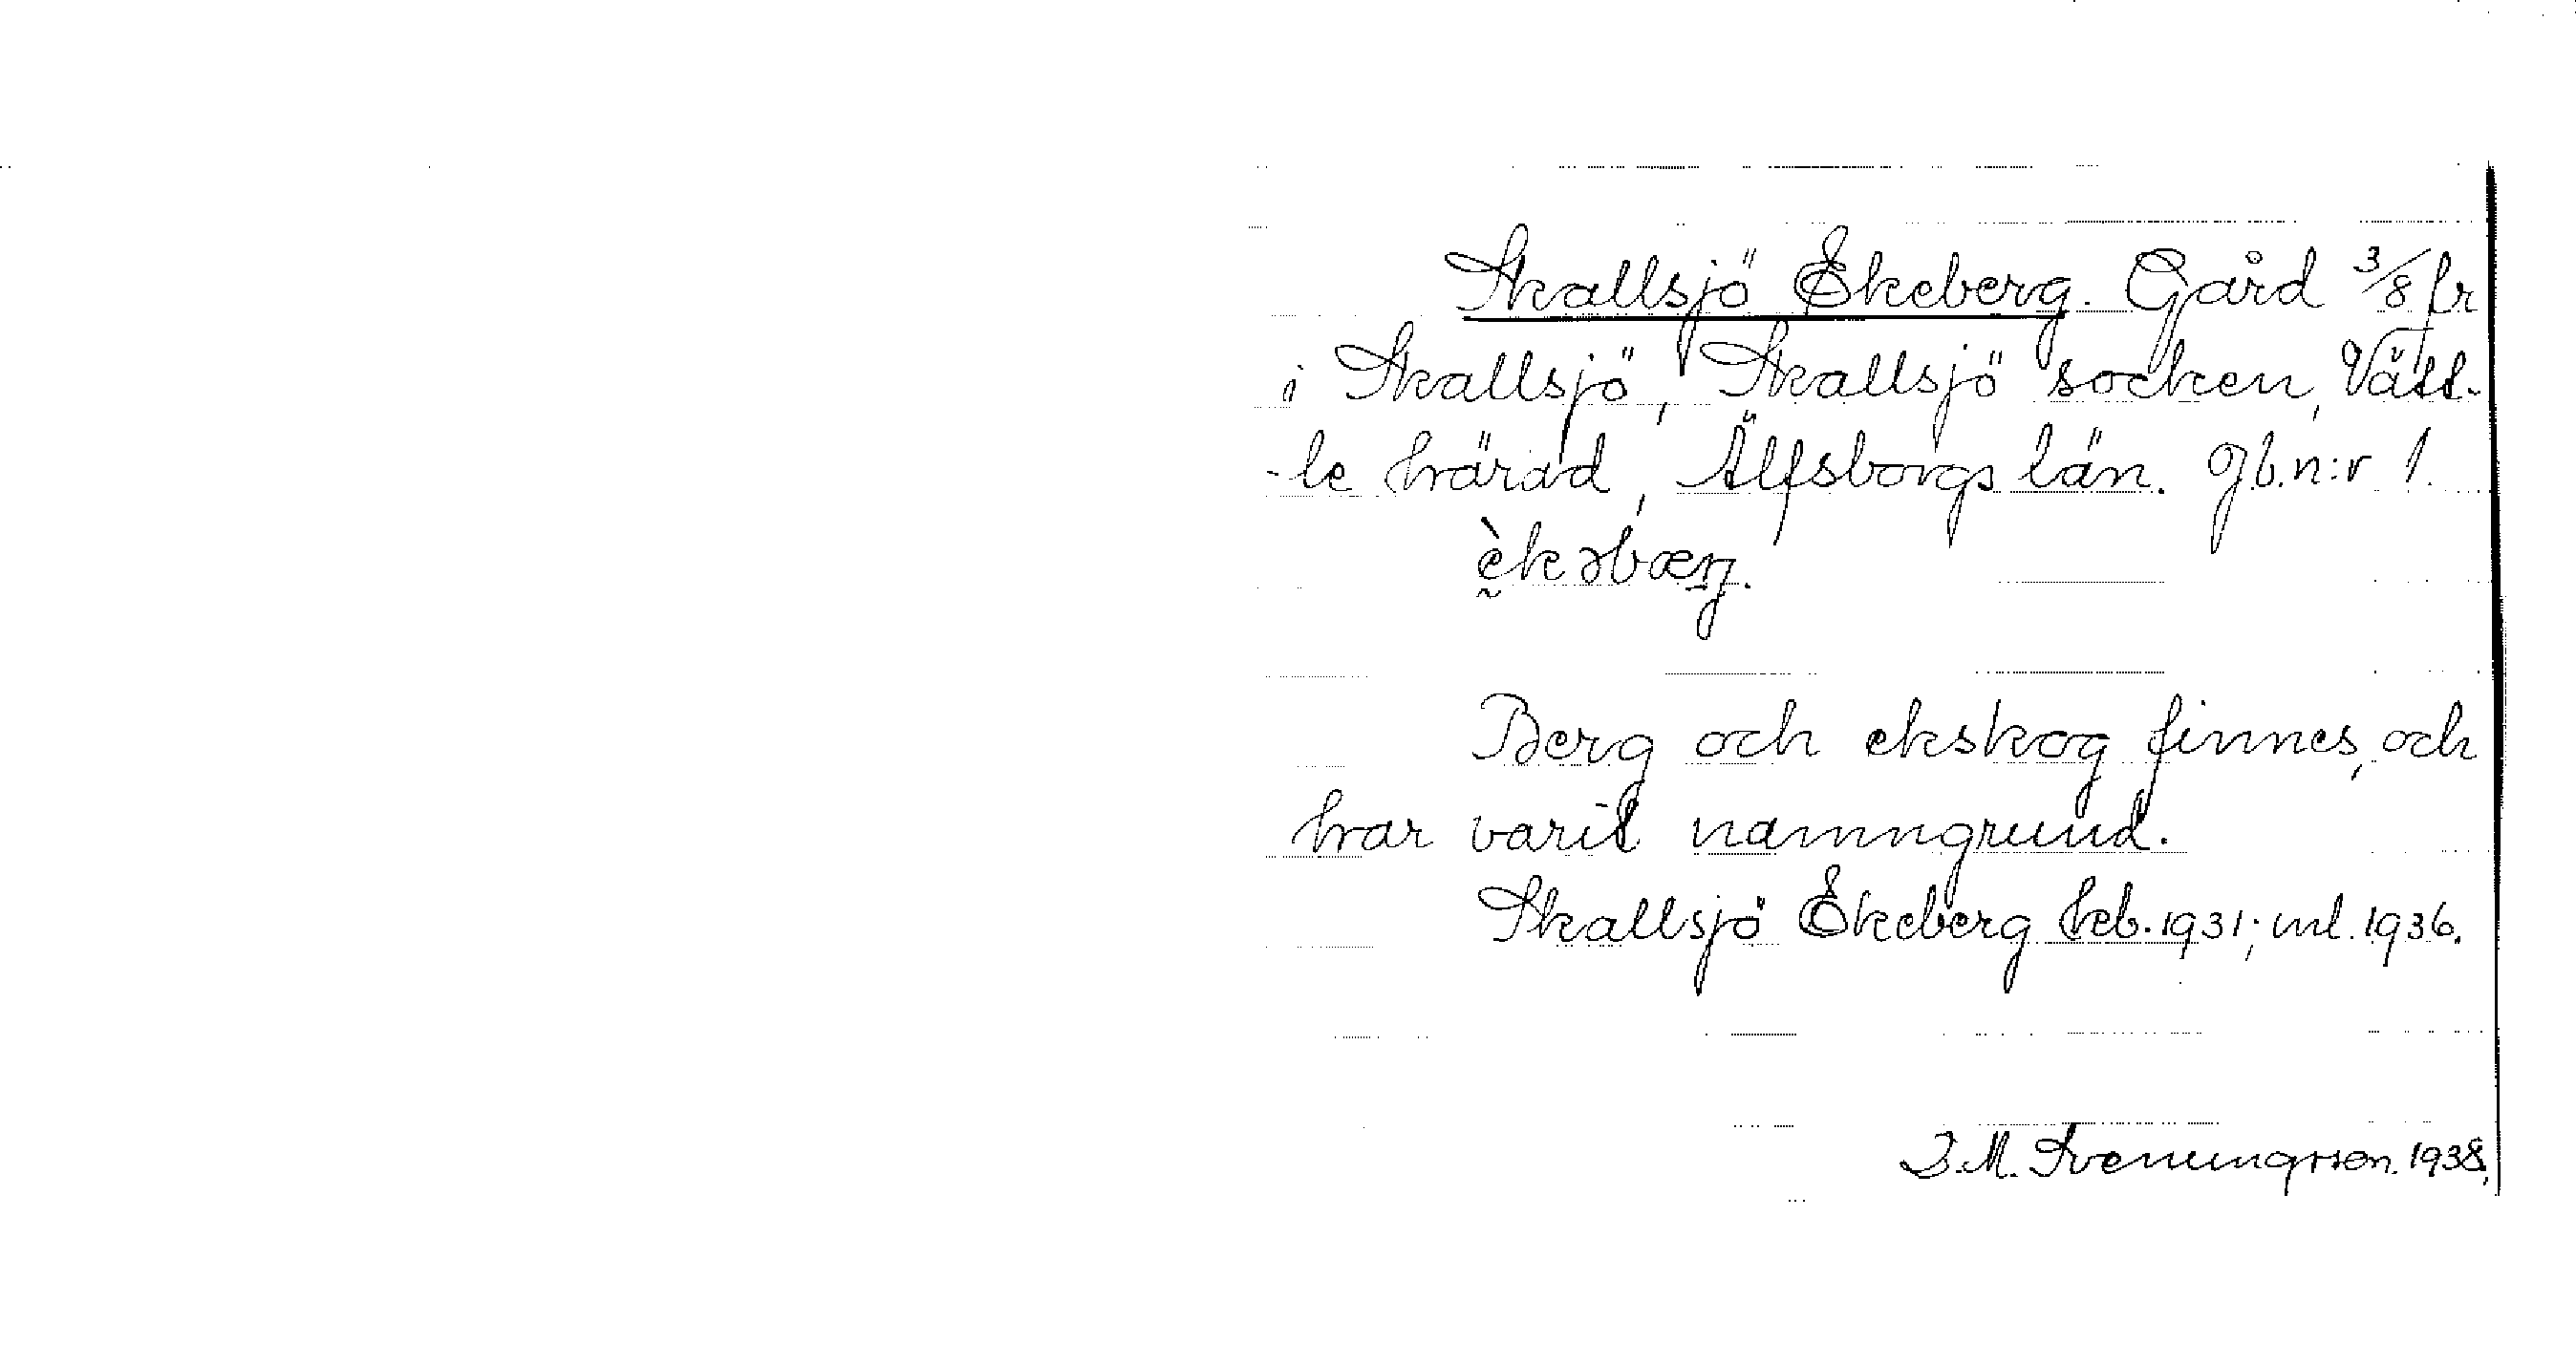 Skallsjö Ekeberg. Gård 3/8 fr
i Skallsjö, Skallsjö socken, Vätt-
-le härad, Älfsborgs län. Jb.n:r 1.
Berg och ekskog finnes, och
har varit namngrund.
Skallsjö Ekeberg keb. 1931; ml. 1936.
J.M. Sveningsson. 1938.